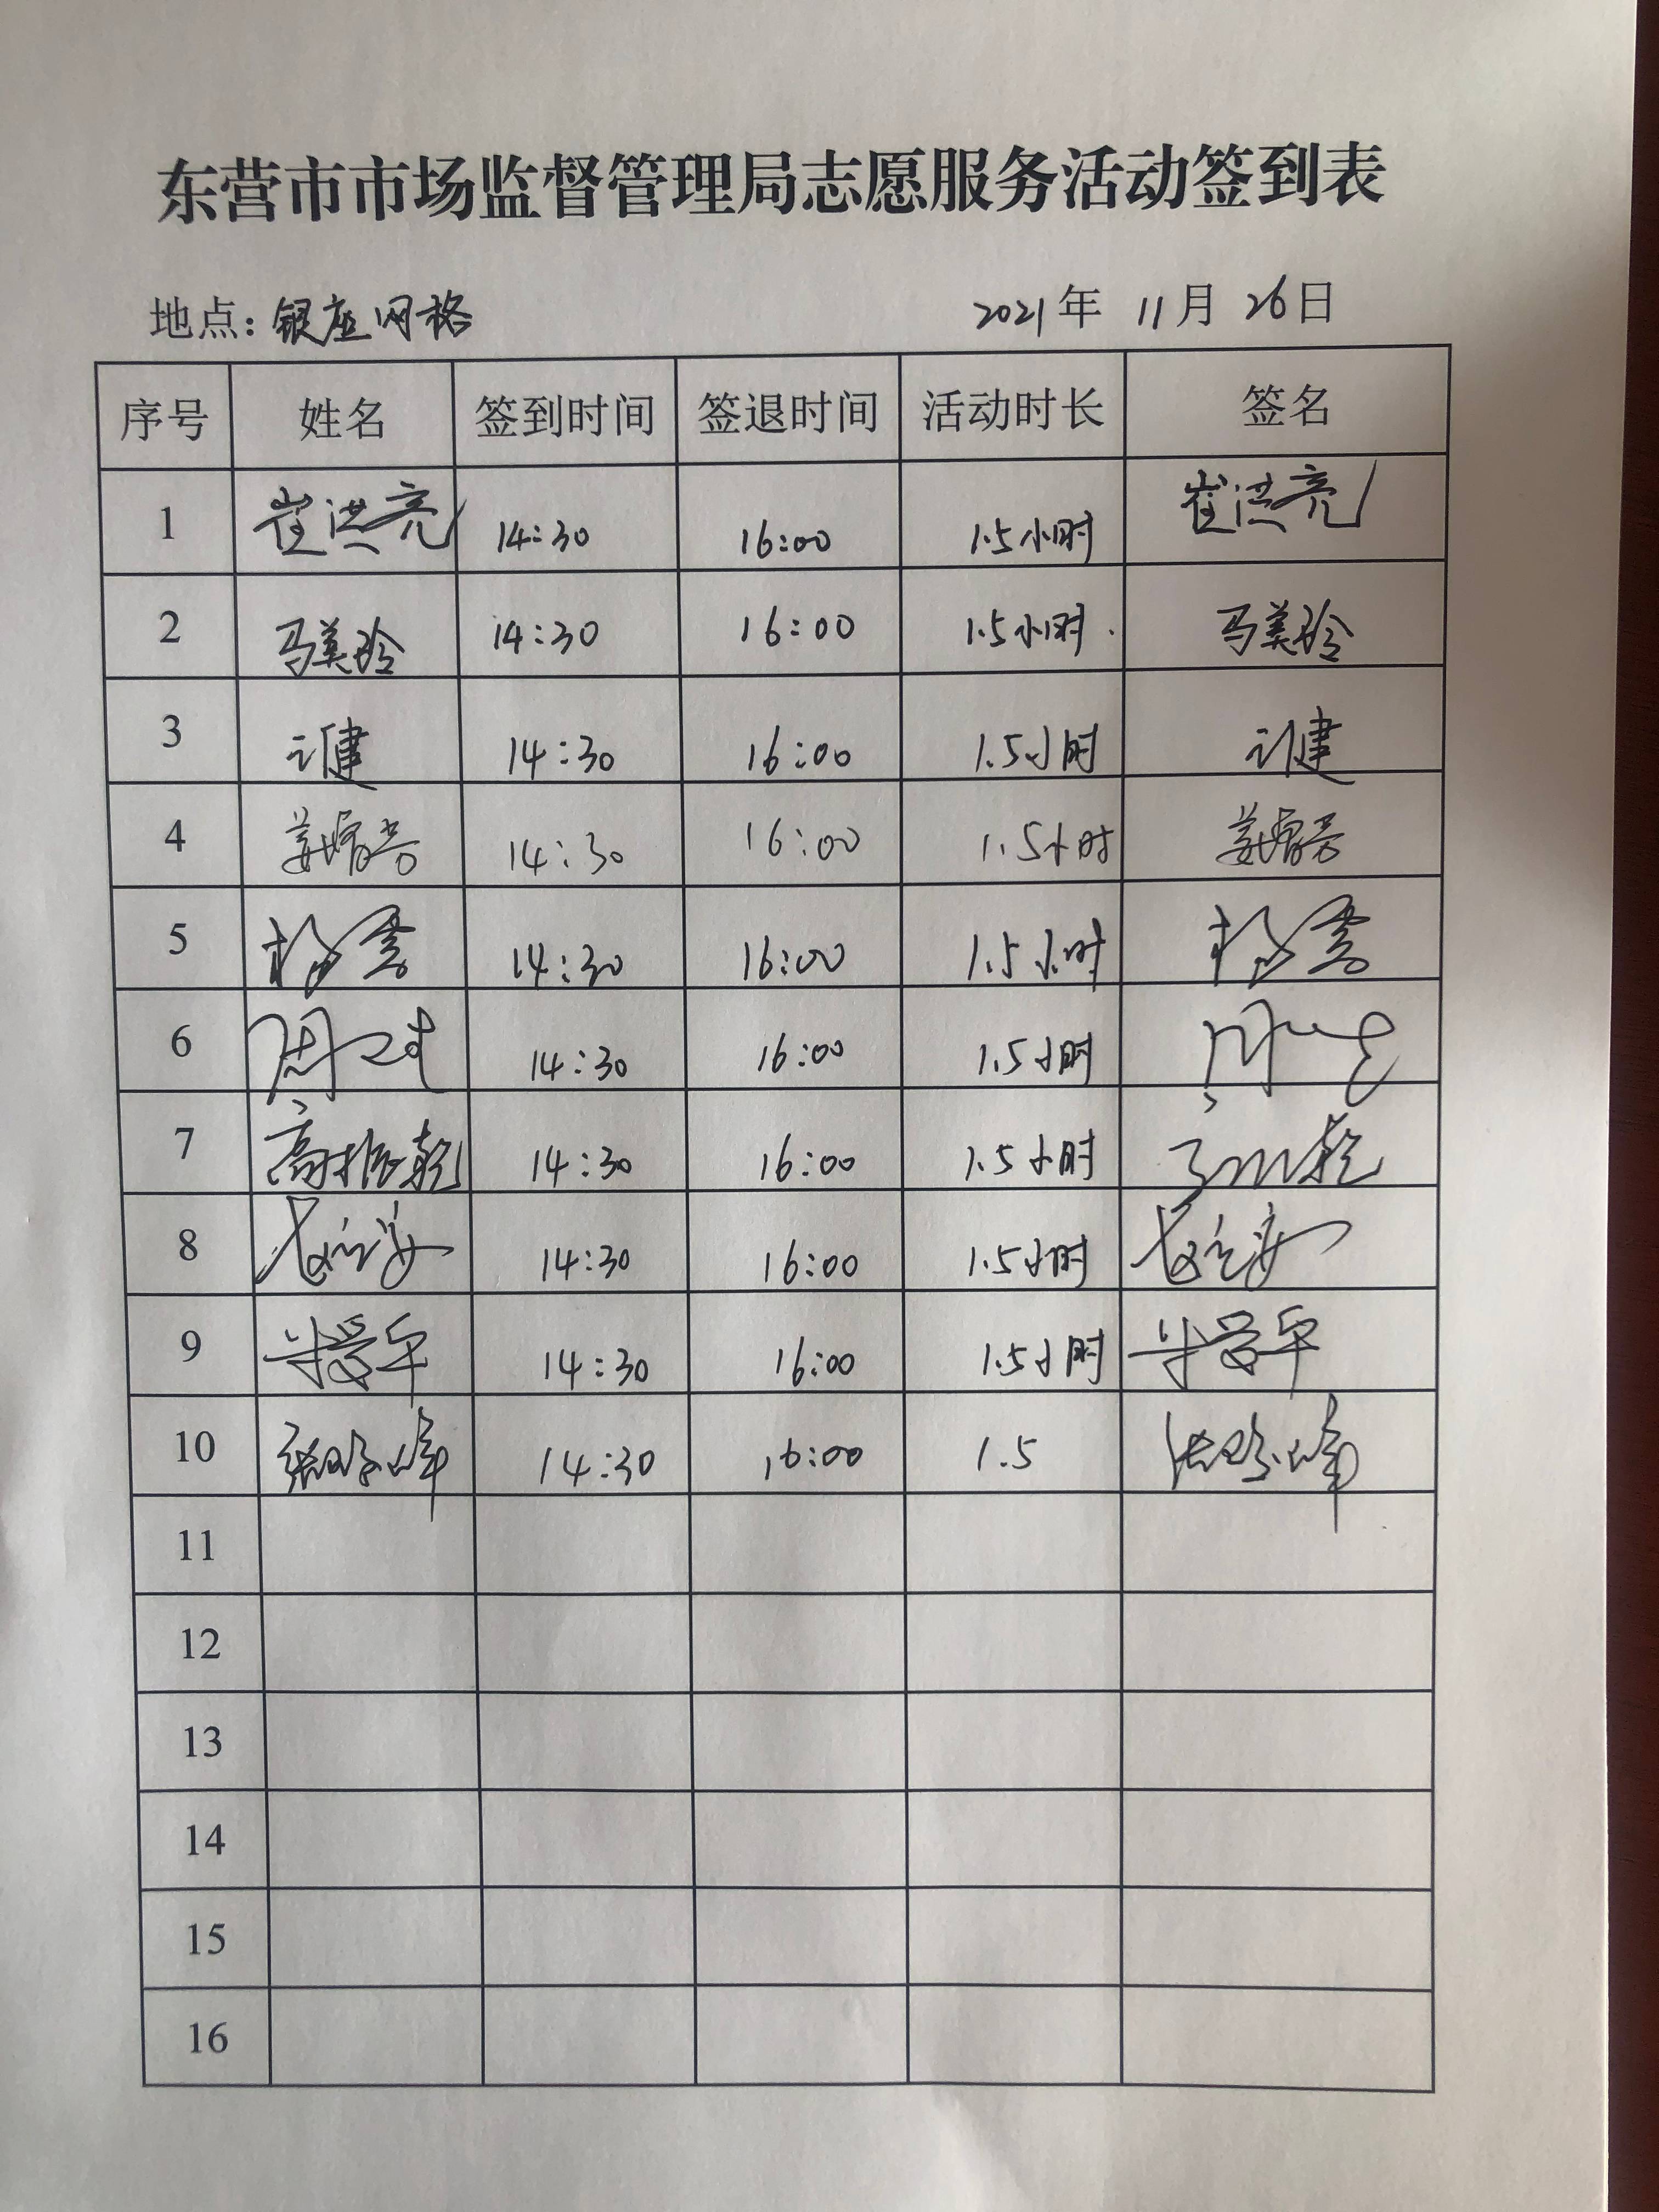 东营市市场监督管理局志愿服务活动签到表
地点：银座网格 2021年 11月 26日
序号 姓名 签到时间 签退时间 活动时长 签名
1 崔洪亮 14:30 16:00 1.5小时 崔洪亮
2 马美玲 14:30 16:00 1.5小时 马美玲
3 14:30 16:00 1.5小时
4 14:30 16:00 1.5小时
5 14:30 16:00 1.5小时
6 14:30 16:00 1.5小时
7 高振乾 14:30 16:00 1.5小时
8 14:30 16:00 1.5小时
9 14:30 16:00 1.5小时
10 14:30 16:00 1.5
11
12
13
14
15
16